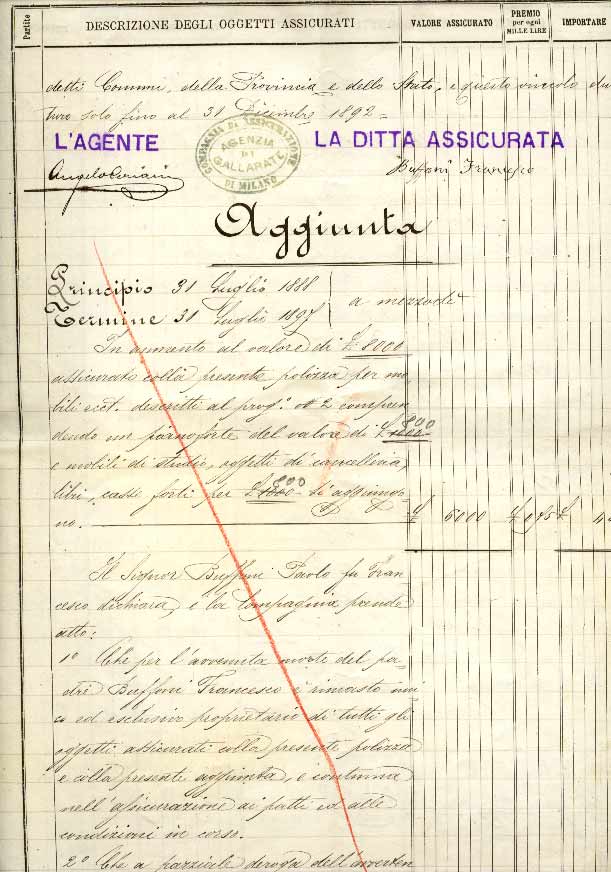 Partite
DESCRIZIONE DEGLI OGGETTI ASSICURATI
VALORE ASSICURATO
PREMIO per ogni MILLE LIRE
IMPORTARE
detti Comuni, della Provincia e dello Stato, e questo vincolo du
turo solo fino al 31 Dicembre 1892=
L'AGENTE
COMPAGNIA DI ASSICURAZIONE
AGENZIA DI GALLARATE
DI MILANO
LA DITTA ASSICURATA
Angelo
Buffoni Francesco
Aggiunta
Principio 31 Luglio 1888
Termine 31 Luglio 1897
a mezzodì
In aumento al valore di £ 8000
assicurato colla presente polizza per mo=
bili ecct. descritti al prog.° N° 2 compren
dendo un pianoforte del valore di £ 1000 800
e mobili di studio, oggetti di cancelleria,
libri, casse forti per £ 1000 800 - si aggiungo=
no.
£ 6000 £ 0,75 £ 4
Il Signor Buffoni Paolo fu Fran
cesco dichiara, e la Compagnia prende
atto:
1° Che per l'avvenuta morte del pa=
dre Buffoni Francesco è rimasto uni=
co ed esclusivo proprietario di tutti gli
oggetti assicurati colla presente polizza
e colla presente aggiunta, e continua
nell'assicurazione ai patti ed alle
condizioni in corso.
2° Che a parziale deroga dell'avverten